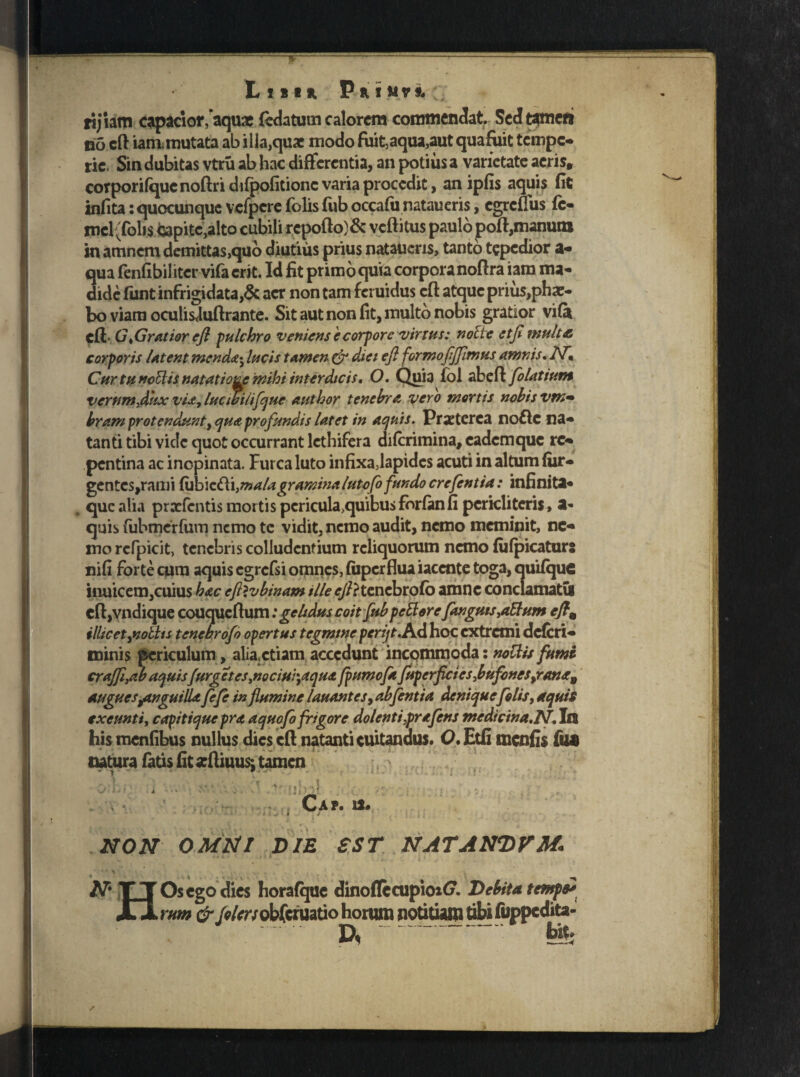 LIBER PRIMVS.
rijiam capacior, aquæ sedatum calorem commendat. Sed tamen
nō est iam mutata ab illa, quæ modo fuit, aqua, aut qua fuit tempe-
rie. Sin dubitas vtrū ab hac differentia, an potius a varietate aeris,
corporisque nostri dispositione varia procedit, an ipsis aquis fit
insita: quocunque vespere solis sub occasu nataueris, egressus se-
mel (solis capite, alto cubili reposto) & vestitus paulò post, manum
in amnem demittas, quò diutiùs prius nataueris, tantò tępedior a-
qua sensibiliter visa erit. Id fit primò quia corpora nostra iam ma-
didè sunt infrigidata, & aer non tam feruidus est atque priùs, phæ-
bo viam oculis lustrante. Sit aut non sit, multò nobis gratior visa
est. G. Gratior est pulchro veniens è corpore virtus: nocte etsi multæ
corporis latent mendæ; lucis tamen & diei est formosissimus amnis. N.
Cur tu noctis natatione mihi interdicis. O. Quia sol abest solatium
verum, dux viæ, lucibilisque author tenebræ verò mortis nobis vm-
bram protendunt, quæ profundis latet in aquis. Præterea nocte na-
tanti tibi vide quot occurrant lethifera discrimina, eademque re-
pentina ac inopinata. Furca luto infixa, lapides acuti in altum sur-
gentes, rami subiecti, mala gramina lutoso fundo cresentia: infinita-
que alia præsentis mortis pericula, quibus forsan si pericliteris, a-
quis submersum nemo te vidit, nemo audit, nemo meminit, ne-
mo respicit, tenebris colludentium reliquorum nemo suspicatur:
nisi fortè cum aquis egressi omnes, superflua iacente toga, quisque
inuicem, cuius hæc est? vbinam ille est? tenebroso amne conclamatū
est, vndique couquestum: gelidus coit sub pectore sanguis, actum est,
illicet, noctis tenebroso opertus tegmine perijt. Ad hoc extremi descri-
minis periculum, alia etiam accedunt incommoda: noctis fumi
crassi, ab aquis surgētes, nociui; aquæ spumosa superficies, bufones, ranæ,
augues, anguillæ sese in flumine lauantes, absentia denique solis, aquis
exeunti, capitique præ aquoso frigore dolenti, præsens medicina. N. In
his mensibus nullus dies est natanti euitandus. O. Etsi mensis sua
natura satis sit æstiuus; tamen
CAP. 12.
NON OMNI DIE EST NATANDVM.
N. HOs ego dies horasque dinosse cupio: G. Debita tempo-
rum & solers obseruatio horum notitiam tibi suppedita-
D, bit.